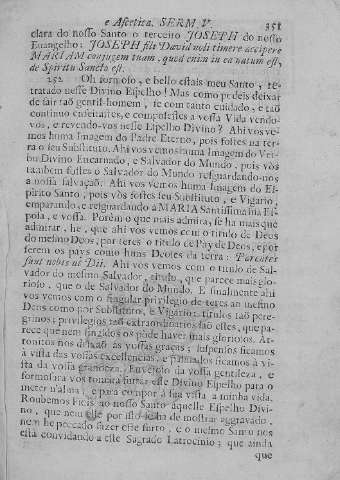 e Ascetica. SERM V. 351
clara do nosso Santo o terceiro JOSEPH do nosso
Euangelho: JOSEPH fili David noli timere accipere
MARIAM conjugem tuam, quod enim in ea natum est,
de Spiritu Sancto est.
252 Oh formoso, e bello estais meu Santo, re-
tratado nesse Divino Espelho! Mas como podeis deixar
de sair taõ gentil-homem, se com tanto cuidado, e taõ
continuo enfeitastes, e compusestes a vossa Vida vendo-
vos, e revendo-vos nesse Espelho Divino? Ahi vos ve-
mos huma Imagem do Padre Eterno, pois fostes na ter-
ra o seu Substituto. Ahi vos vemos huma Imagem do Ver-
bo Divino Encarnado, e Salvador do Mundo, pois vòs
tambem fostes o Salvador do Mundo resguardando-nos
a nossa salvaçaõ. Ahi vos vemos huma Imagem do Es-
pirito Santo, pois vòs fostes seu Substituto, e Vigario,
emparando, e resguardando a MARIA Santissima sua Es-
posa, e vossa. Porèm o que mais admira, se ha mais que
admirar, he, que ahi vos vemos com o titulo de Deos
do mesmo Deos, por teres o titulo de Pay de Deos, e por
serem os pays como huns Deoses da terra: Parentes
sunt nobis ut Dii. Ahi vos vemos com o titulo de Sal-
vador do mesmo Salvador, titulo, que parece mais glo-
rioso, que o de Salvador do Mundo. E finalmente ahi
vos vemos com o singular privilegio de teres ao mesmo
Deos como por Substituto, e Vigario: titulos taõ pere-
grinos; privilegios taõ extraordinarios saõ estes, que pa-
rece que nem fingidos os pòde haver mais gloriosos. At-
tonitos nos deixaõ as vossas graças; suspensos ficamos
à vista das vossas excellencias, e pasmados ficamos à vi-
sta da vossa grandeza. Enveioso da vossa gentileza, e
formosura vos tomara furtar esse Divino Espelho para o
meter n'alma, e para compor à sua vista a minha vida.
Roubemos Fieis ao nosso Santo aquelle Espelho Divi-
no, que nem elle por isso se ha de mostrar aggravado,
nem he peccado fazer este furto, e o mesmo Santo nos
está convidando a este Sagrado Latrocinio; que ainda
que